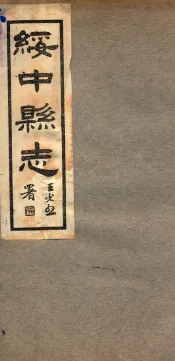 綏中縣志
署